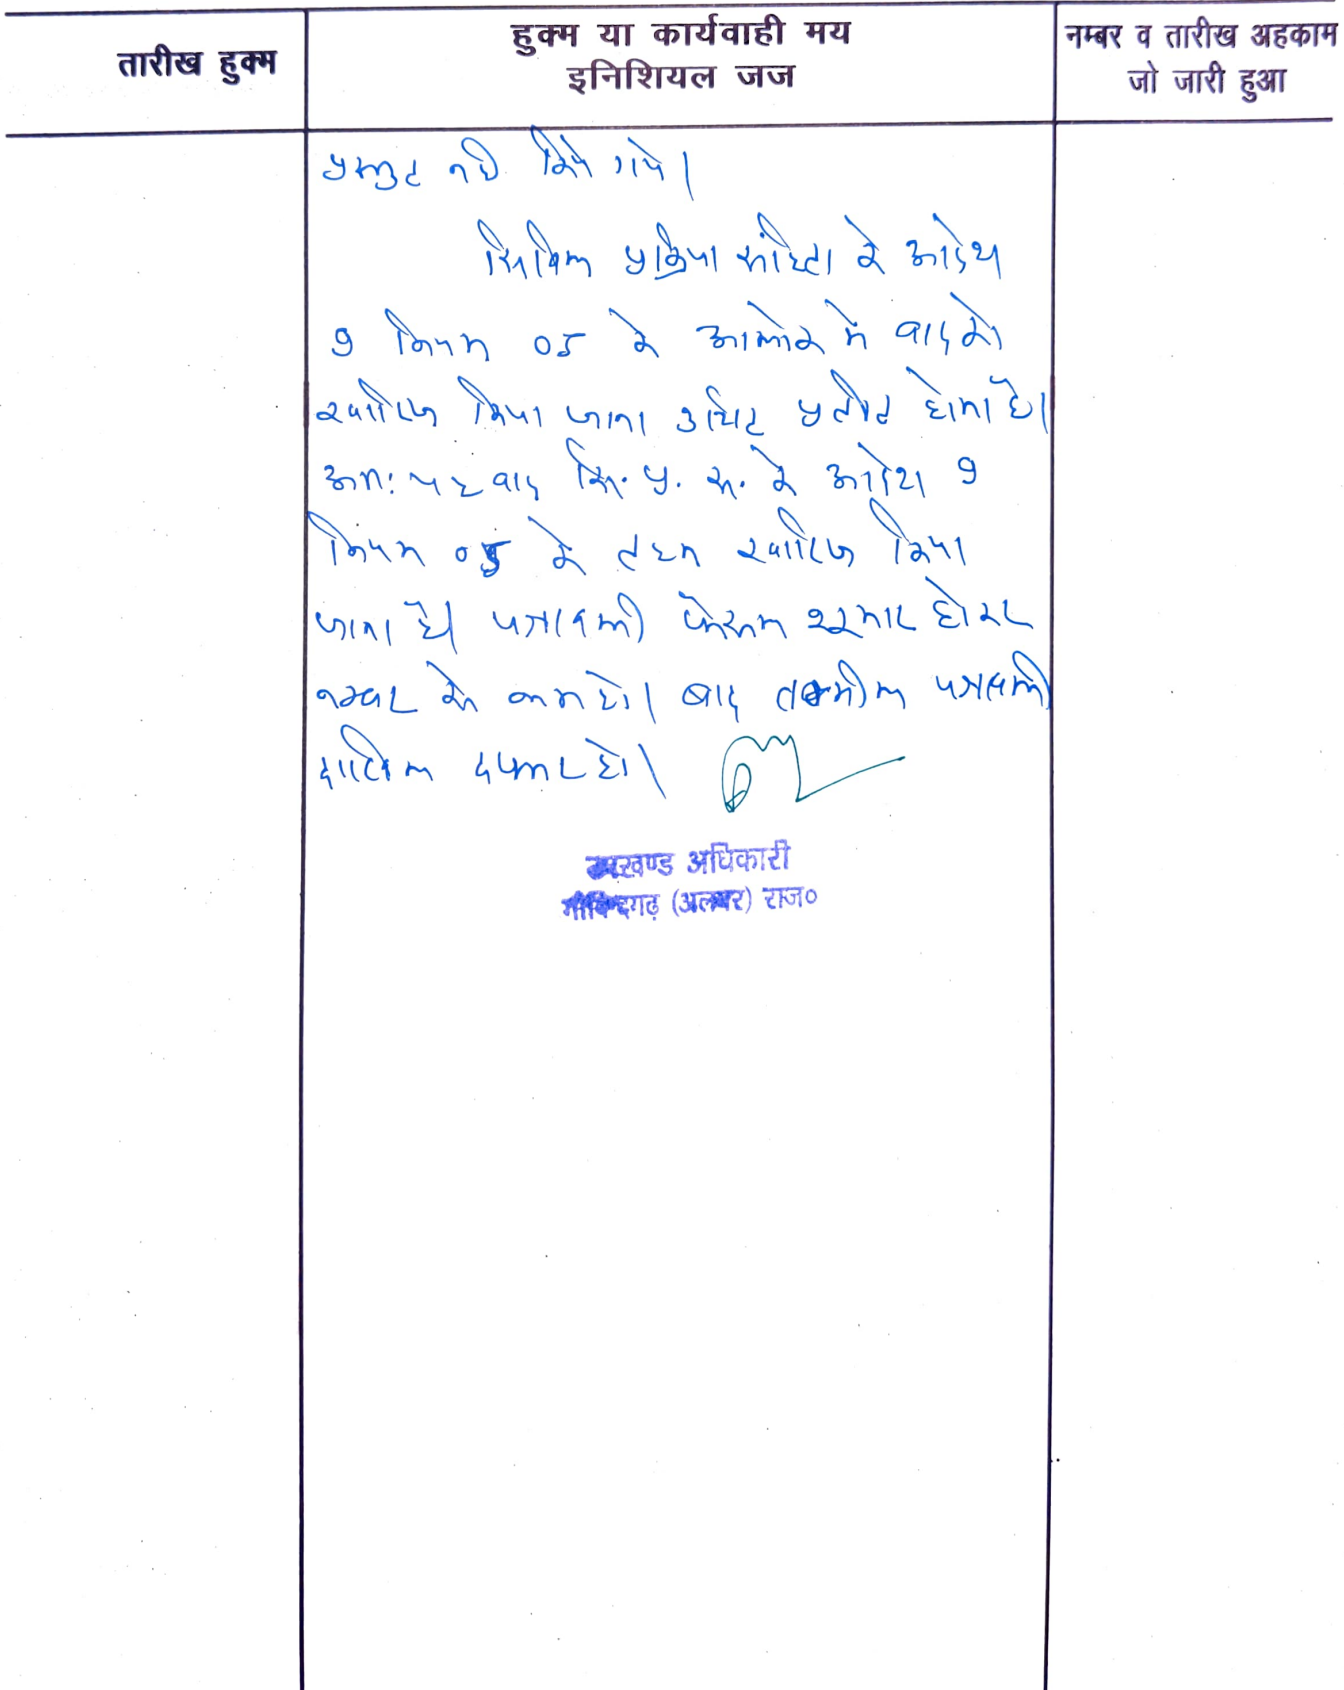 तारीख हुक्म
हुक्म या कार्यवाही मय
इनिशियल जज
नम्बर व तारीख अहकाम
जो जारी हुआ
प्रस्तुत नही किये गये।
सिविल प्रक्रिया संहिता के आदेश
9 नियम 05 के आलोक में वाद को
खारिज किया जाना उचित प्रतीत होता है।
अतः यह वाद सि. प्र. स. के आदेश 9
नियम 05 के तहत खारिज किया
जाता है। पत्रावली फैसल शुमार होकर
नम्बर से कम हो। बाद तकमील पत्रावली
दाखिल दफ्तर हो।
उपखण्ड अधिकारी
गोविन्दगढ़ (अलवर) राज०